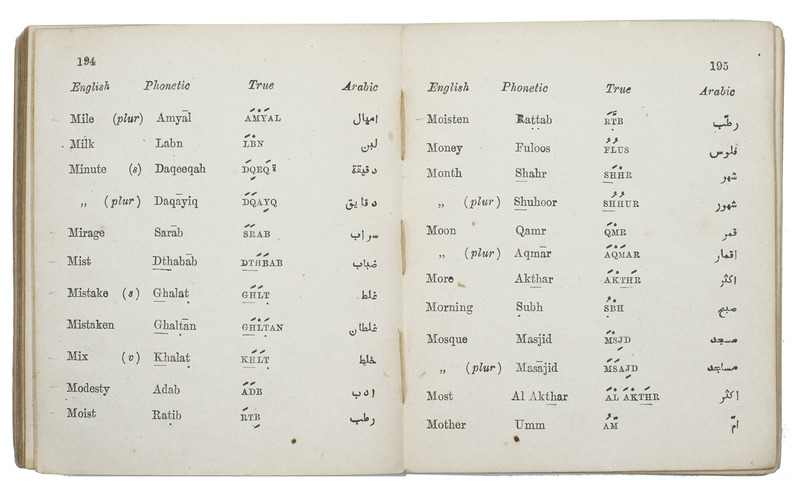 194
English Phonetic True Arabic
Mile (plur) Amyāl ÁMYAL اميال
Milk Labn LBN لبن
Minute (s) Daqeeqah DQEQӓ دقيقة
„ (plur) Daqāyiq DQAYQ دقايق
Mirage Sarāb SRAB سراب
Mist Dthabāb DTHBAB ضباب
Mistake (s) Ghalaṭ GHLṬ غلط
Mistaken Ghalṭān GHLṬAN غلطان
Mix (v) Khalaṭ KHLṬ خلط
Modesty Adab ADB ادب
Moist Raṭib RṬB رطب
195
English Phonetic True Arabic
Moisten Raṭṭab RṬB رطّب
Money Fuloos FLUS فلوس
Month Shahr SHHR شهر
„ (plur) Shuhoor SHHUR شهور
Moon Qamr QMR قمر
„ (plur) Aqmār AQMAR اقمار
More Akthar AKTHR اكثر
Morning Ṣubh ṢBH صبح
Mosque Masjid MSJD مسجد
„ (plur) Masājid MSAJD مساجد
Most Al Akthar AL AKTHR اكثر
Mother Umm AM امّ